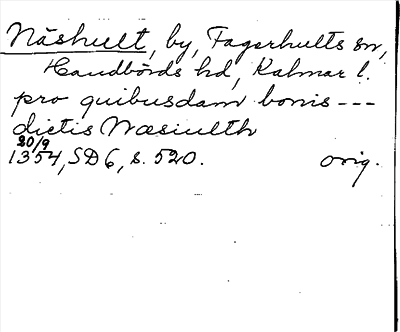 Näshult, by, Fagerhults sn,
Handbörds hd, Kalmar l.
pro quibusdam bonis ---
dictis Næsiulth
20/9
1354, SD 6, s. 520. orig.